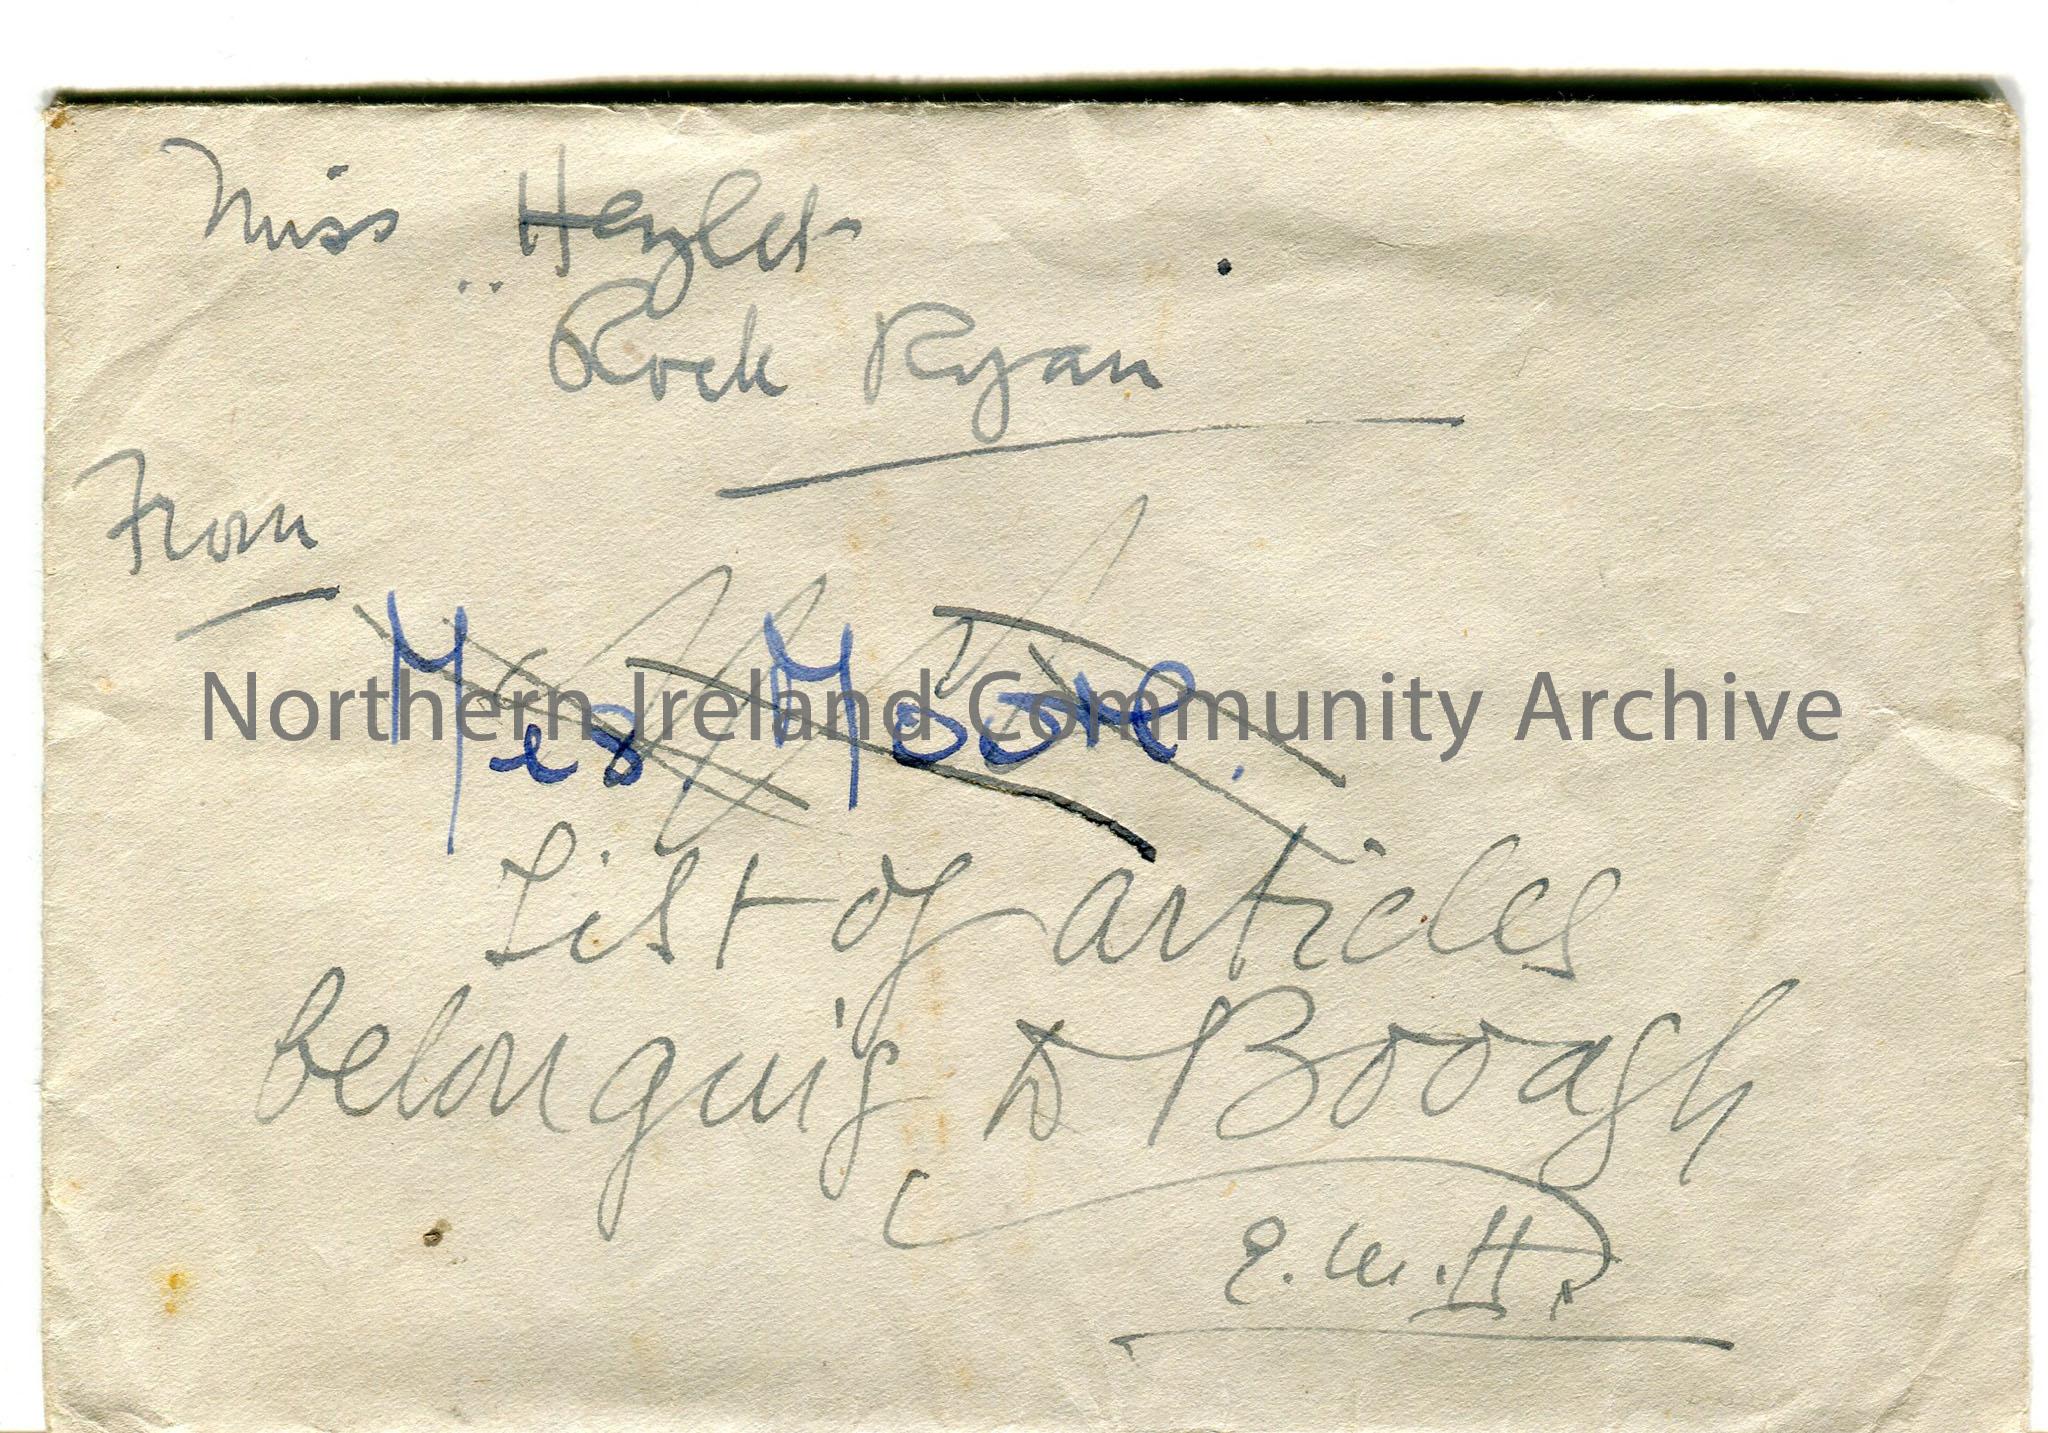 Miss Hezlet
Rock Ryan
From
Mrs. Moore.
Northern Ireland Community Archive
List of articles
belonging to Booagh
E. M. H.